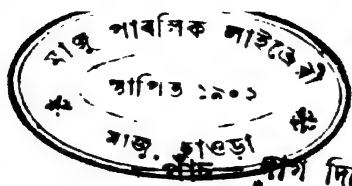 মাজু পাবলিক লাইব্রেরী
স্থাপিত ১৯০২
মাজু, হাওড়া
দি